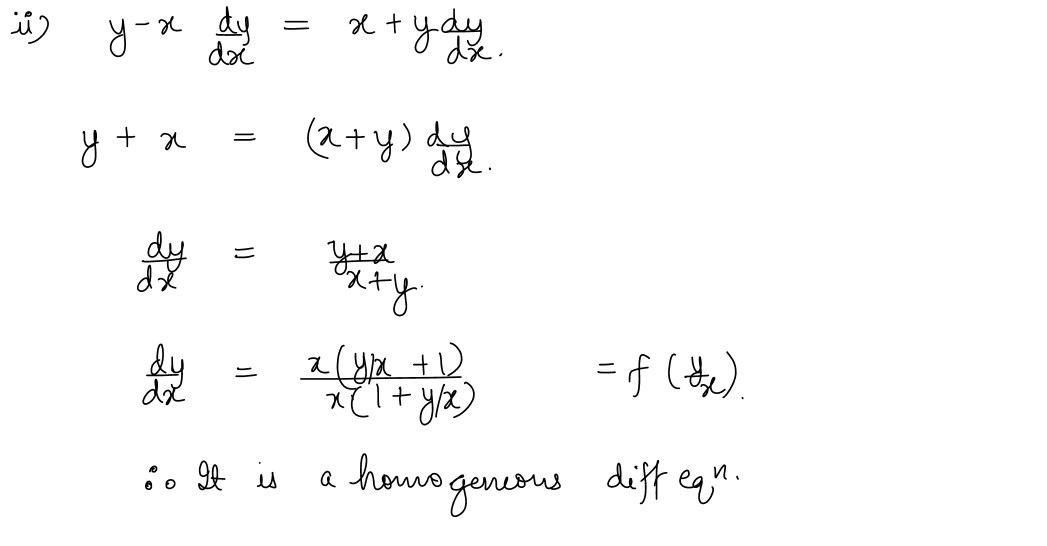 ii) y - x dy/dx = x + y dy/dx.
y + x = (x + y) dy/dx.
dy/dx = y+x / x+y.
dy/dx = x(y/x + 1) / x(1 + y/x) = f(y/x).
∴ It is a homogeneous diff eqⁿ.